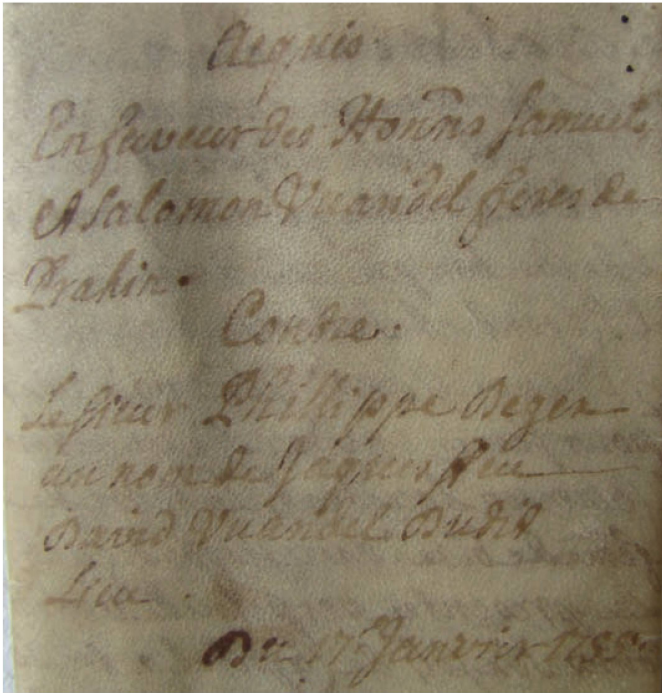 Acquis
En faveur des Honn̄s Samuel,
et Salomon Vuandel freres de
Prahin.
Contre.
Le sieur Phillippe Deger
au nom de Jaques feu
David Vuandel Dudit
Lieu.
Du 17e Janvier